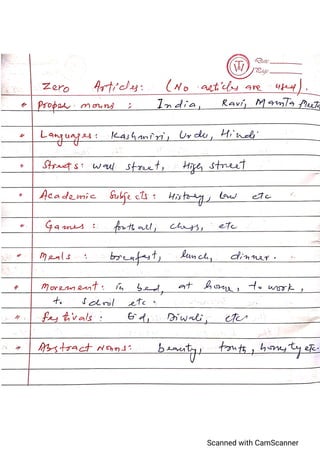 Date
Page
Zero Articles: (No articles are used).
* Proper nouns : India, Ravi, Mamta
* Languages : Kashmiri, Urdu, Hindi
* Streets : Wall street, High street
* Academic Subjects : History, law etc
* Games : football, chess, etc
* Meals : breakfast, lunch, dinner.
* Movement : in bed, at home, to work,
to school etc.
* Festivals : Eid, Diwali, etc
* Abstract Nouns : beauty, truth, honesty etc.
Scanned with CamScanner